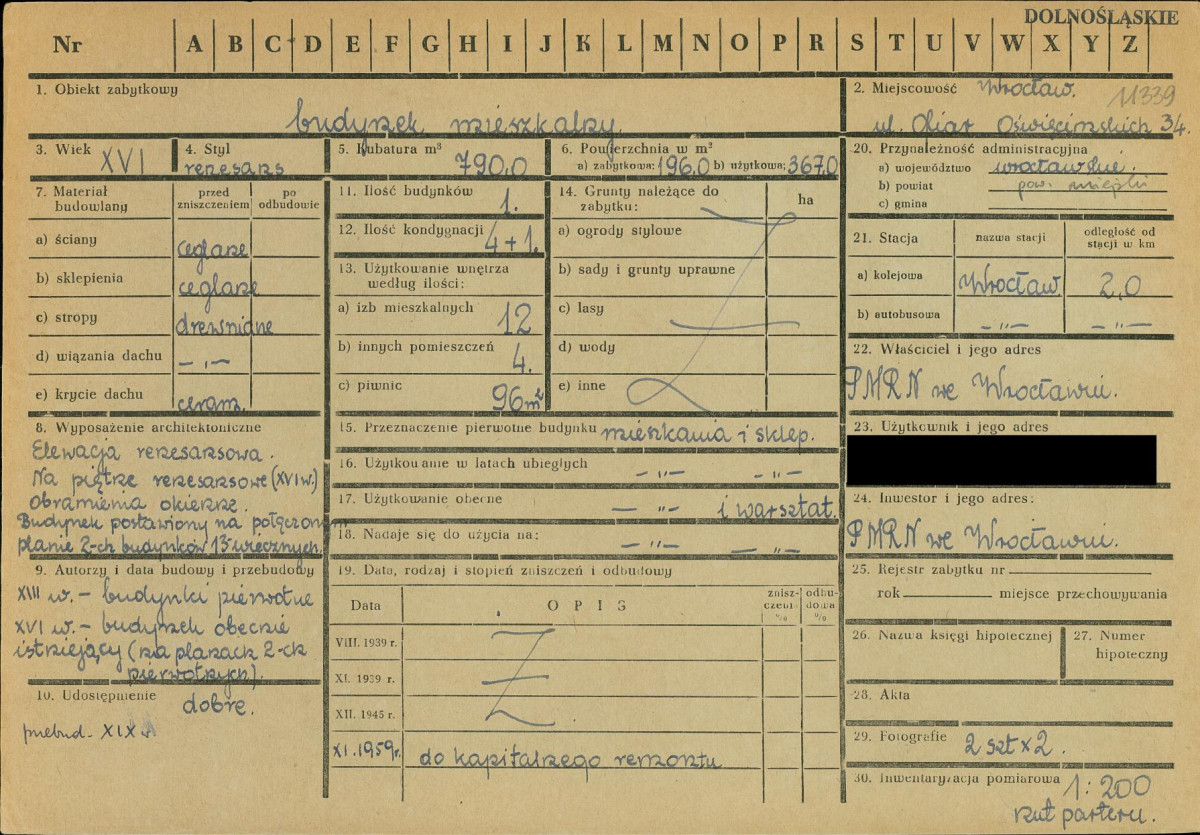 DOLNOŚLĄSKIE
Nr A B C D E F G H I J K L M N O P R S T U V W X Y Z
1. Obiekt zabytkowy
budynek mieszkalny.
2. Miejscowość Wrocław. 11339
ul. Ofiar Oświęcimskich 34.
3. Wiek XVI
4. Styl
renesans
5. Kubatura m³
790,0
6. Powierzchnia w m²
a) zabytkowa: 196,0 b) użytkowa: 367,0
20. Przynależność administracyjna
a) województwo wrocławskie.
b) powiat pow. miejski
c) gmina
7. Materiał budowlany
przed zniszczeniem
po odbudowie
a) ściany ceglane
b) sklepienia ceglane
c) stropy drewniane
d) wiązania dachu — „ —
e) krycie dachu ceram.
8. Wyposażenie architektoniczne
Elewacja renesansowa.
Na piętrze renesansowe (XVI w.)
obramienia okienne.
Budynek postawiony na połączonym
planie 2-ch budynków 13-wiecznych.
9. Autorzy i data budowy i przebudowy
XIII w. – budynki pierwotne
XVI w. – budynek obecnie
istniejący (na planach 2-ch
pierwotnych).
10. Udostępnienie
dobre.
przebud. XIX w
11. Ilość budynków
1.
12. Ilość kondygnacji
4+1.
13. Użytkowanie wnętrza
według ilości:
a) izb mieszkalnych 12
b) innych pomieszczeń 4.
c) piwnic 96 m²
14. Grunty należące do
zabytku:
ha
a) ogrody stylowe
b) sady i grunty uprawne
c) lasy
d) wody
e) inne
15. Przeznaczenie pierwotne budynku mieszkania i sklep.
16. Użytkowanie w latach ubiegłych — „ — — „ —
17. Użytkowanie obecne — „ — i warsztat.
18. Nadaje się do użycia na: — „ — — „ —
19. Data, rodzaj i stopień zniszczeń i odbudowy
Data
OPIS
znisz-
czeń
%
odbu-
dowa
%
VIII. 1939 r.
XI. 1939 r.
XII. 1945 r.
XI. 1959 r. do kapitalnego remontu
21. Stacja
nazwa stacji
odległość od
stacji w km
a) kolejowa Wrocław 2,0
b) autobusowa — „ — — „ —
22. Właściciel i jego adres
PMRN we Wrocławiu.
23. Użytkownik i jego adres
24. Inwestor i jego adres:
PMRN we Wrocławiu.
25. Rejestr zabytku nr
rok miejsce przechowywania
26. Nazwa księgi hipotecznej
27. Numer
hipoteczny
28. Akta
29. Fotografie 2 szt x 2.
30. Inwentaryzacja pomiarowa 1:200
rzut parteru.